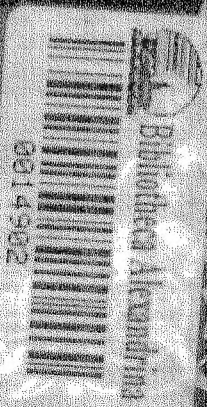 Bibliotheca Alexandrina
0014902